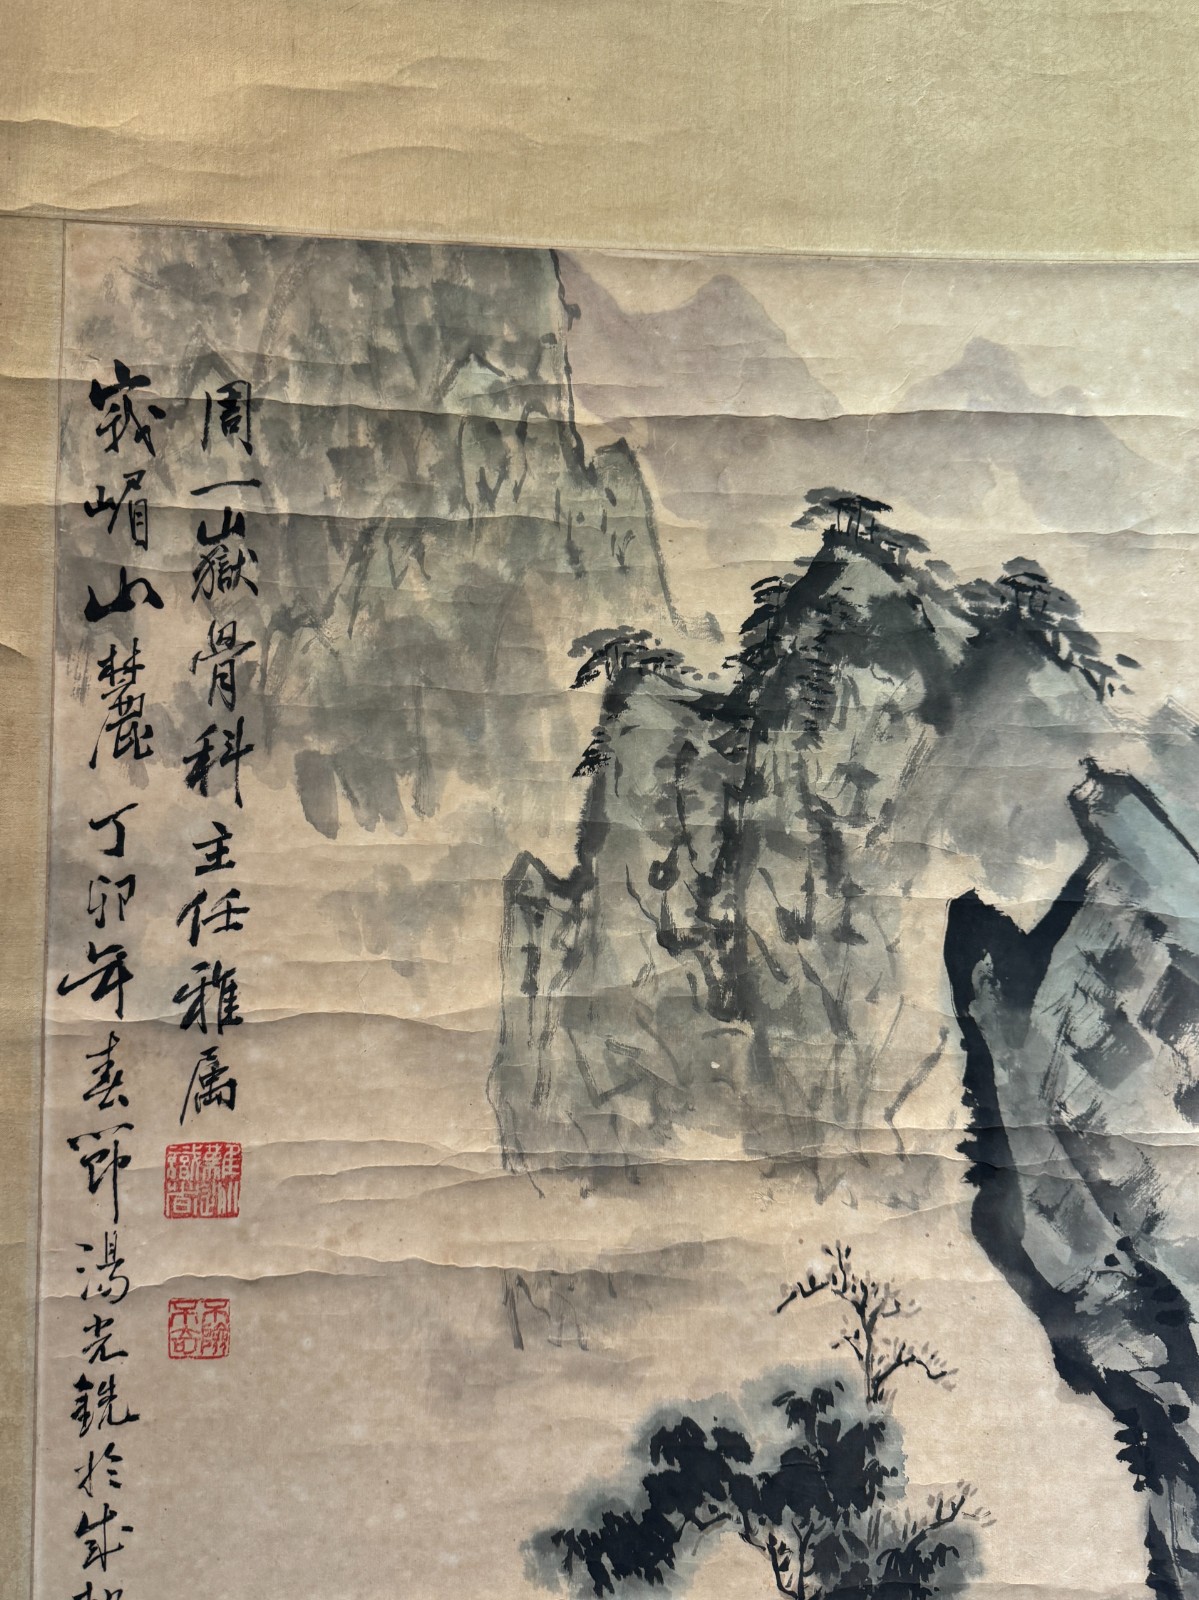 周一山嶽骨科主任雅属
峩嵋山麓丁卯年春節湯光銑於成都